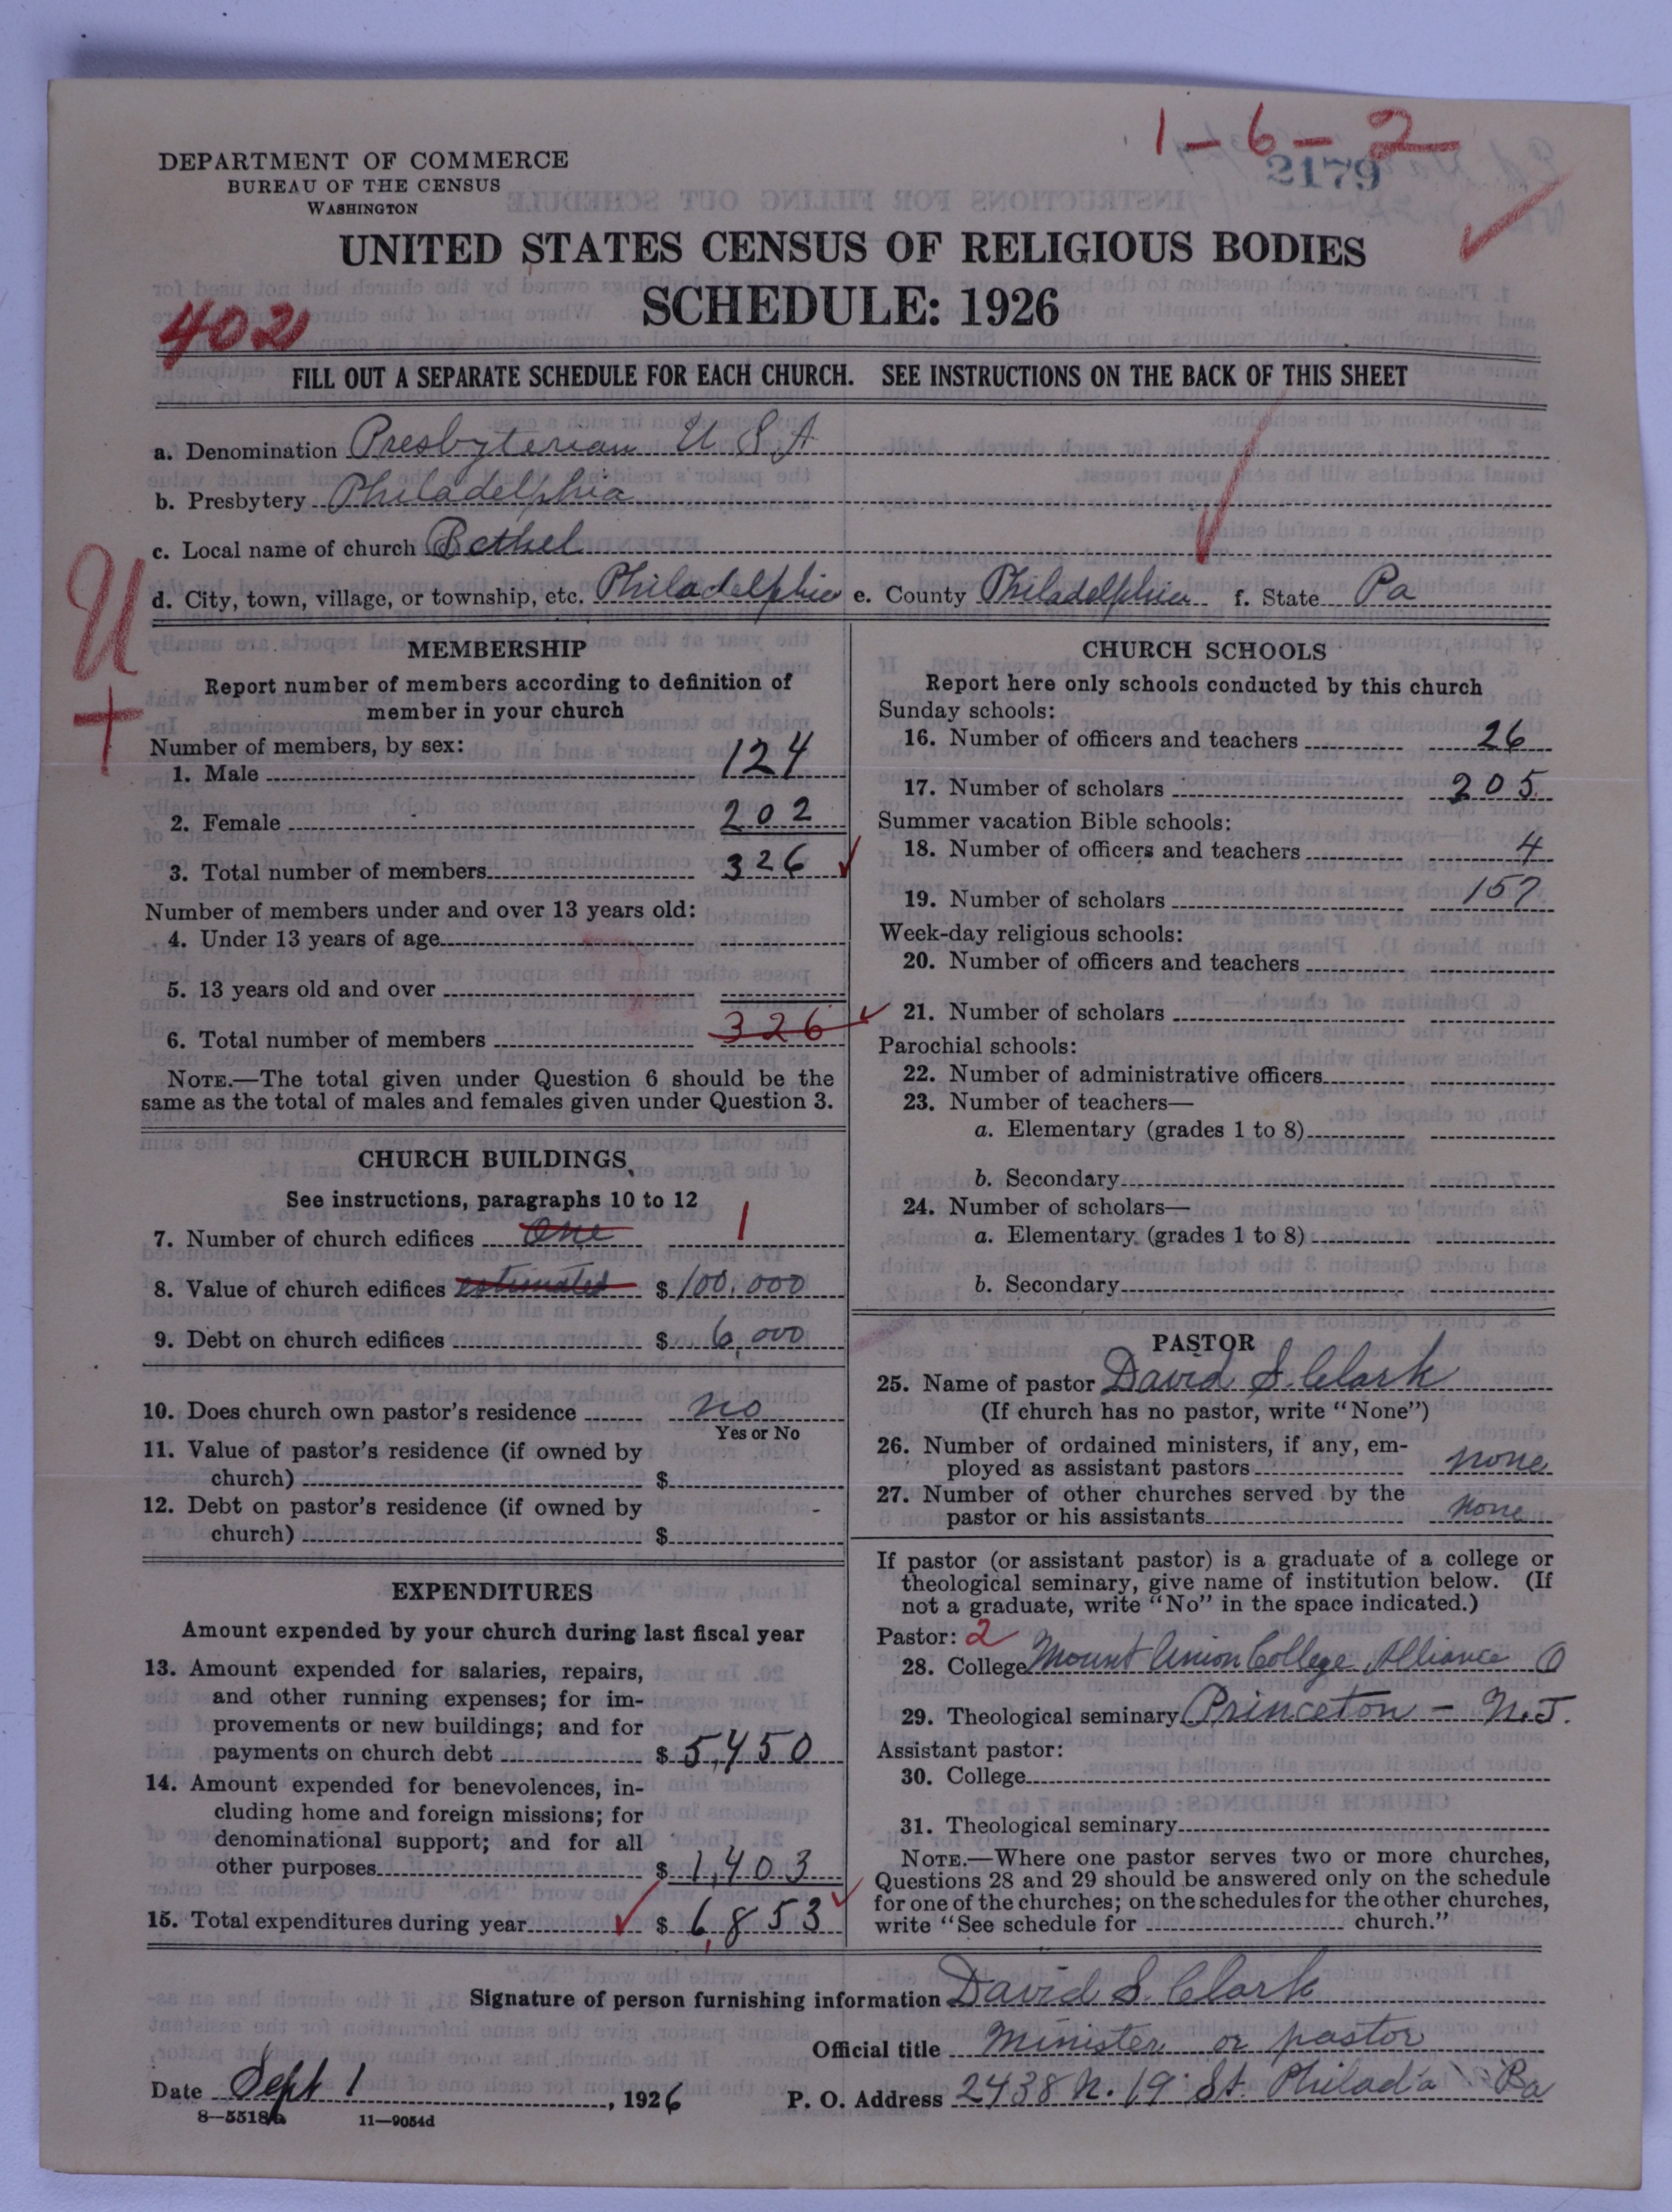 1-6-2
2179
DEPARTMENT OF COMMERCE
BUREAU OF THE CENSUS
WASHINGTON
UNITED STATES CENSUS OF RELIGIOUS BODIES
SCHEDULE: 1926
402
FILL OUT A SEPARATE SCHEDULE FOR EACH CHURCH. SEE INSTRUCTIONS ON THE BACK OF THIS SHEET
a. Denomination Presbyterian U S A
b. Presbytery Philadelphia
c. Local name of church Bethel
d. City, town, village, or township, etc. Philadelphia e. County Philadelphia f. State Pa
U
+
MEMBERSHIP
Report number of members according to definition of
member in your church
Number of members, by sex:
1. Male 124
2. Female 202
3. Total number of members 326
Number of members under and over 13 years old:
4. Under 13 years of age
5. 13 years old and over
6. Total number of members 326
NOTE.—The total given under Question 6 should be the
same as the total of males and females given under Question 3.
CHURCH BUILDINGS
See instructions, paragraphs 10 to 12
7. Number of church edifices One 1
8. Value of church edifices estimated $ 100,000
9. Debt on church edifices $ 6,000
10. Does church own pastor's residence no
Yes or No
11. Value of pastor's residence (if owned by
church) $
12. Debt on pastor's residence (if owned by
church) $
EXPENDITURES
Amount expended by your church during last fiscal year
13. Amount expended for salaries, repairs,
and other running expenses; for im-
provements or new buildings; and for
payments on church debt $ 5,450
14. Amount expended for benevolences, in-
cluding home and foreign missions; for
denominational support; and for all
other purposes $ 1,403
15. Total expenditures during year $ 6,853
CHURCH SCHOOLS
Report here only schools conducted by this church
Sunday schools:
16. Number of officers and teachers 26
17. Number of scholars 205
Summer vacation Bible schools:
18. Number of officers and teachers 4
19. Number of scholars 157
Week-day religious schools:
20. Number of officers and teachers
21. Number of scholars
Parochial schools:
22. Number of administrative officers
23. Number of teachers—
a. Elementary (grades 1 to 8)
b. Secondary
24. Number of scholars—
a. Elementary (grades 1 to 8)
b. Secondary
PASTOR
25. Name of pastor David S. Clark
(If church has no pastor, write "None")
26. Number of ordained ministers, if any, em-
ployed as assistant pastors none
27. Number of other churches served by the
pastor or his assistants none
If pastor (or assistant pastor) is a graduate of a college or
theological seminary, give name of institution below. (If
not a graduate, write "No" in the space indicated.)
Pastor: 2
28. College Mount Union College Alliance O
29. Theological seminary Princeton - N.J.
Assistant pastor:
30. College
31. Theological seminary
NOTE.—Where one pastor serves two or more churches,
Questions 28 and 29 should be answered only on the schedule
for one of the churches; on the schedules for the other churches,
write "See schedule for church."
Signature of person furnishing information David S. Clark
Official title Minister or pastor
Date Sept 1, 1926 P. O. Address 2438 N. 19 St. Philad'a Pa
8—5518a 11—9054d